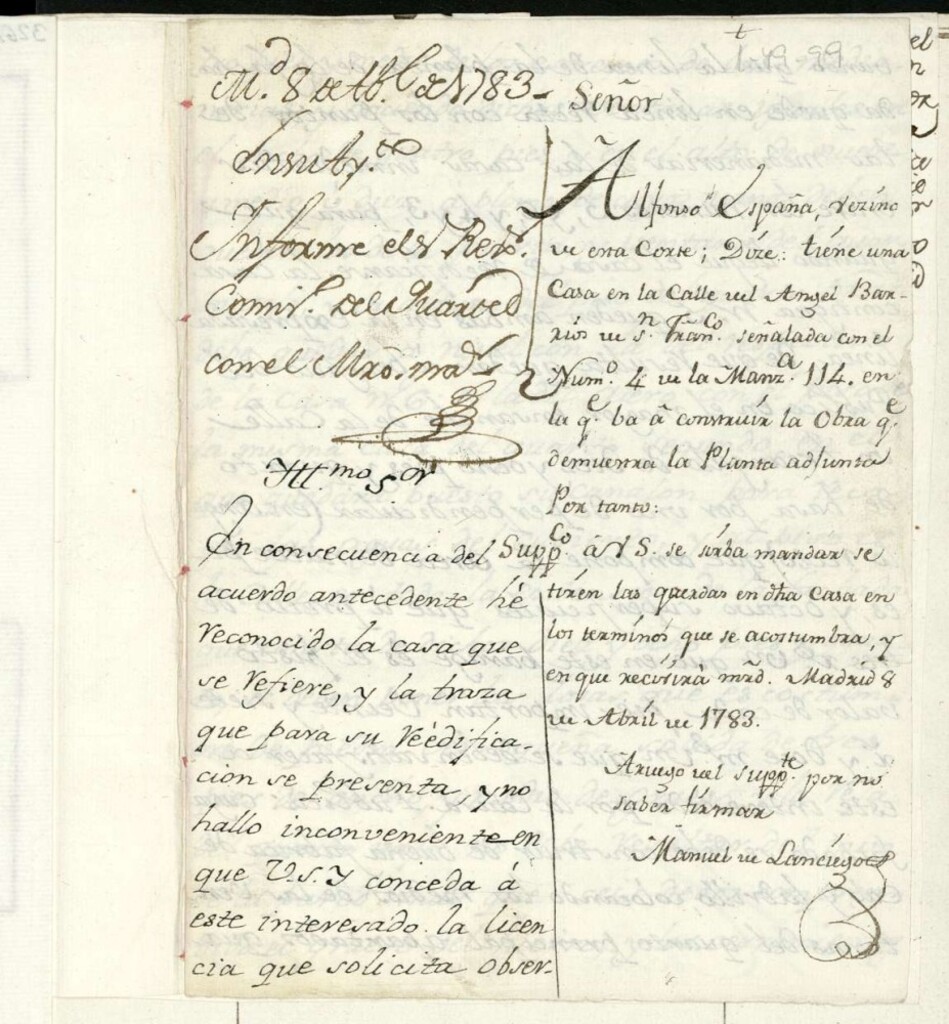 Md. 8 de Ab.l de 1783
En su Ay.to
Informe el S.r Rexr.
Comis.o del Quartel
con el Mro. mr.
Yll.mo S.or
En consecuencia del
acuerdo antecedente hé
reconocido la casa que
se refiere, y la traza
que para su réedifica-
cion se presenta, y no
hallo inconveniente en
que V.S.Y conceda á
este interesado la licen
cia que solicita obser-
Señor
Alfonso España, vezino
de esta Corte; Dize: tiene una
Casa en la Calle del Angel Bar-
rios de S.n Fran.co señalada con el
Num.o 4 de la Manz.a 114. en
la q.e ba á construir la Obra q.e
demuestra la Planta adjunta
Por tanto:
Supp.co á V S. se sirba mandar se
tiren las querdas en dha Casa en
los terminos que se acostumbra, y
en que recivirá mrd. Madrid 8
de Abril de 1783.
A ruego del supp.te por no
saber firmar
Manuel de Lanciego